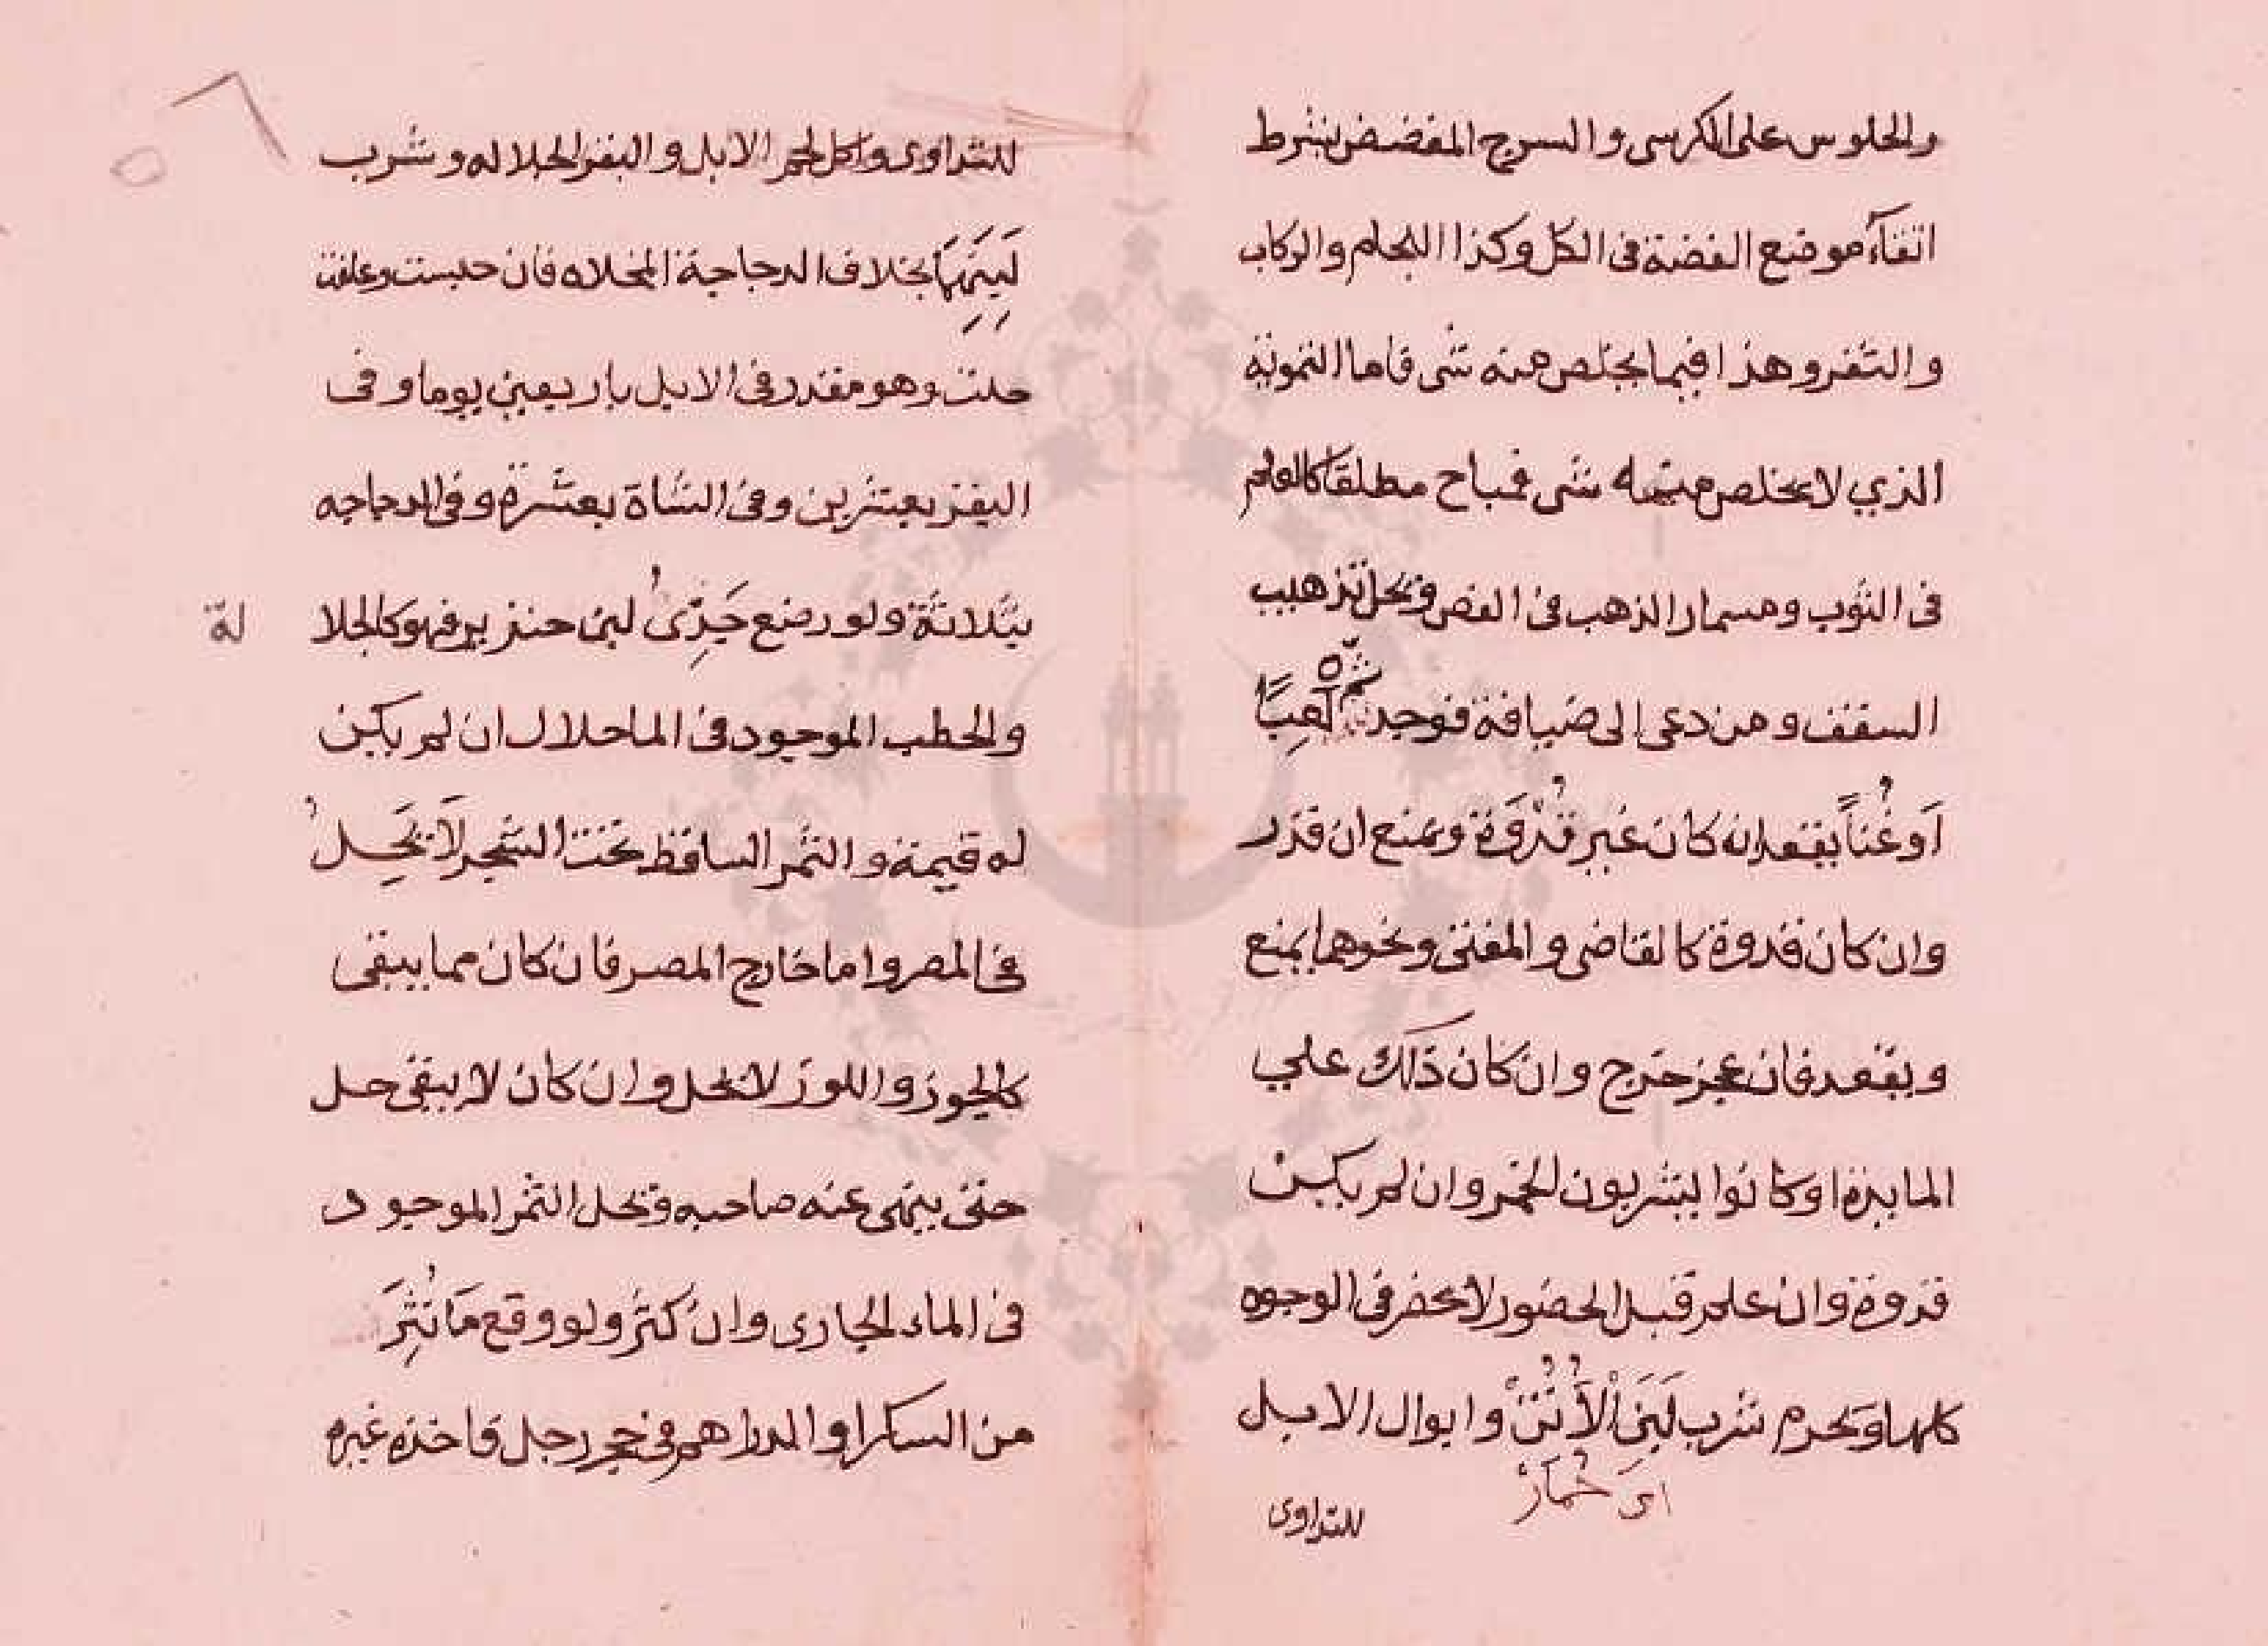 والجلوس على الكرسى والسرج المفضض بشرط
اتقآء موضع الفضة فى الكل وكذا اللجام والركاب
والثفر وهذا فيما يخلص منه شى فاما التمويه
الذي لا يخلص منه شى فمباح مطلقا كالعلم
فى الثوب ومسمار الذهب فى الفص ويحل تذهيب
السقف ومن دعى الى ضيافة فوجد ثمه لَعِبًا
اَو غُنَاً يقعد ان كان غير قُدْوَة ويمنع ان قدر
وان كان قدوة كالقاضى والمفتى ونحوهما يمنع
ويقعد فان عجز خرج وان كان ذَلك علي
المايدة او كانوا يشربون الخمر وان لم يكن
قدوة وان علم قبل الحضور لا يحضر فى الوجوه
كلها ويحرم شرب لَبَنِ الْأُتُنْ وابوال الابل
اىَ حُمَارْ
للتداوى
للتداوى واكل لحم الابل والبقر الجلاله وشرب
لَبَنِهَا بخلاف الدجاجة المخلاه فان حبست وعلفت
حلت وهو مقدر فى الابل باربعين يوما وفى
البقر بعشرين وفى الشاة بعشرة وفى الدجاجه
بثلاثة ولو رضع جَدِىُ لبن خنزير فهو كالجلا
لة
والحطب الموجود فى الما حلال ان لم يكن
له قيمة والثمر الساقط تحت الشجر لَا يَحِلُ
فى المصر واما خارج المصر فان كان مما يبقى
كالجوز واللوز لا يحل وان كان لا يبقى حل
حتى ينهى عنه صاحبه ويحل الثمر الموجود
فى الماء الجارى وان كثر ولو وقع مَا نُثِرَ
من السكر او الدراهم فى حجر رجل فاخذه غيره